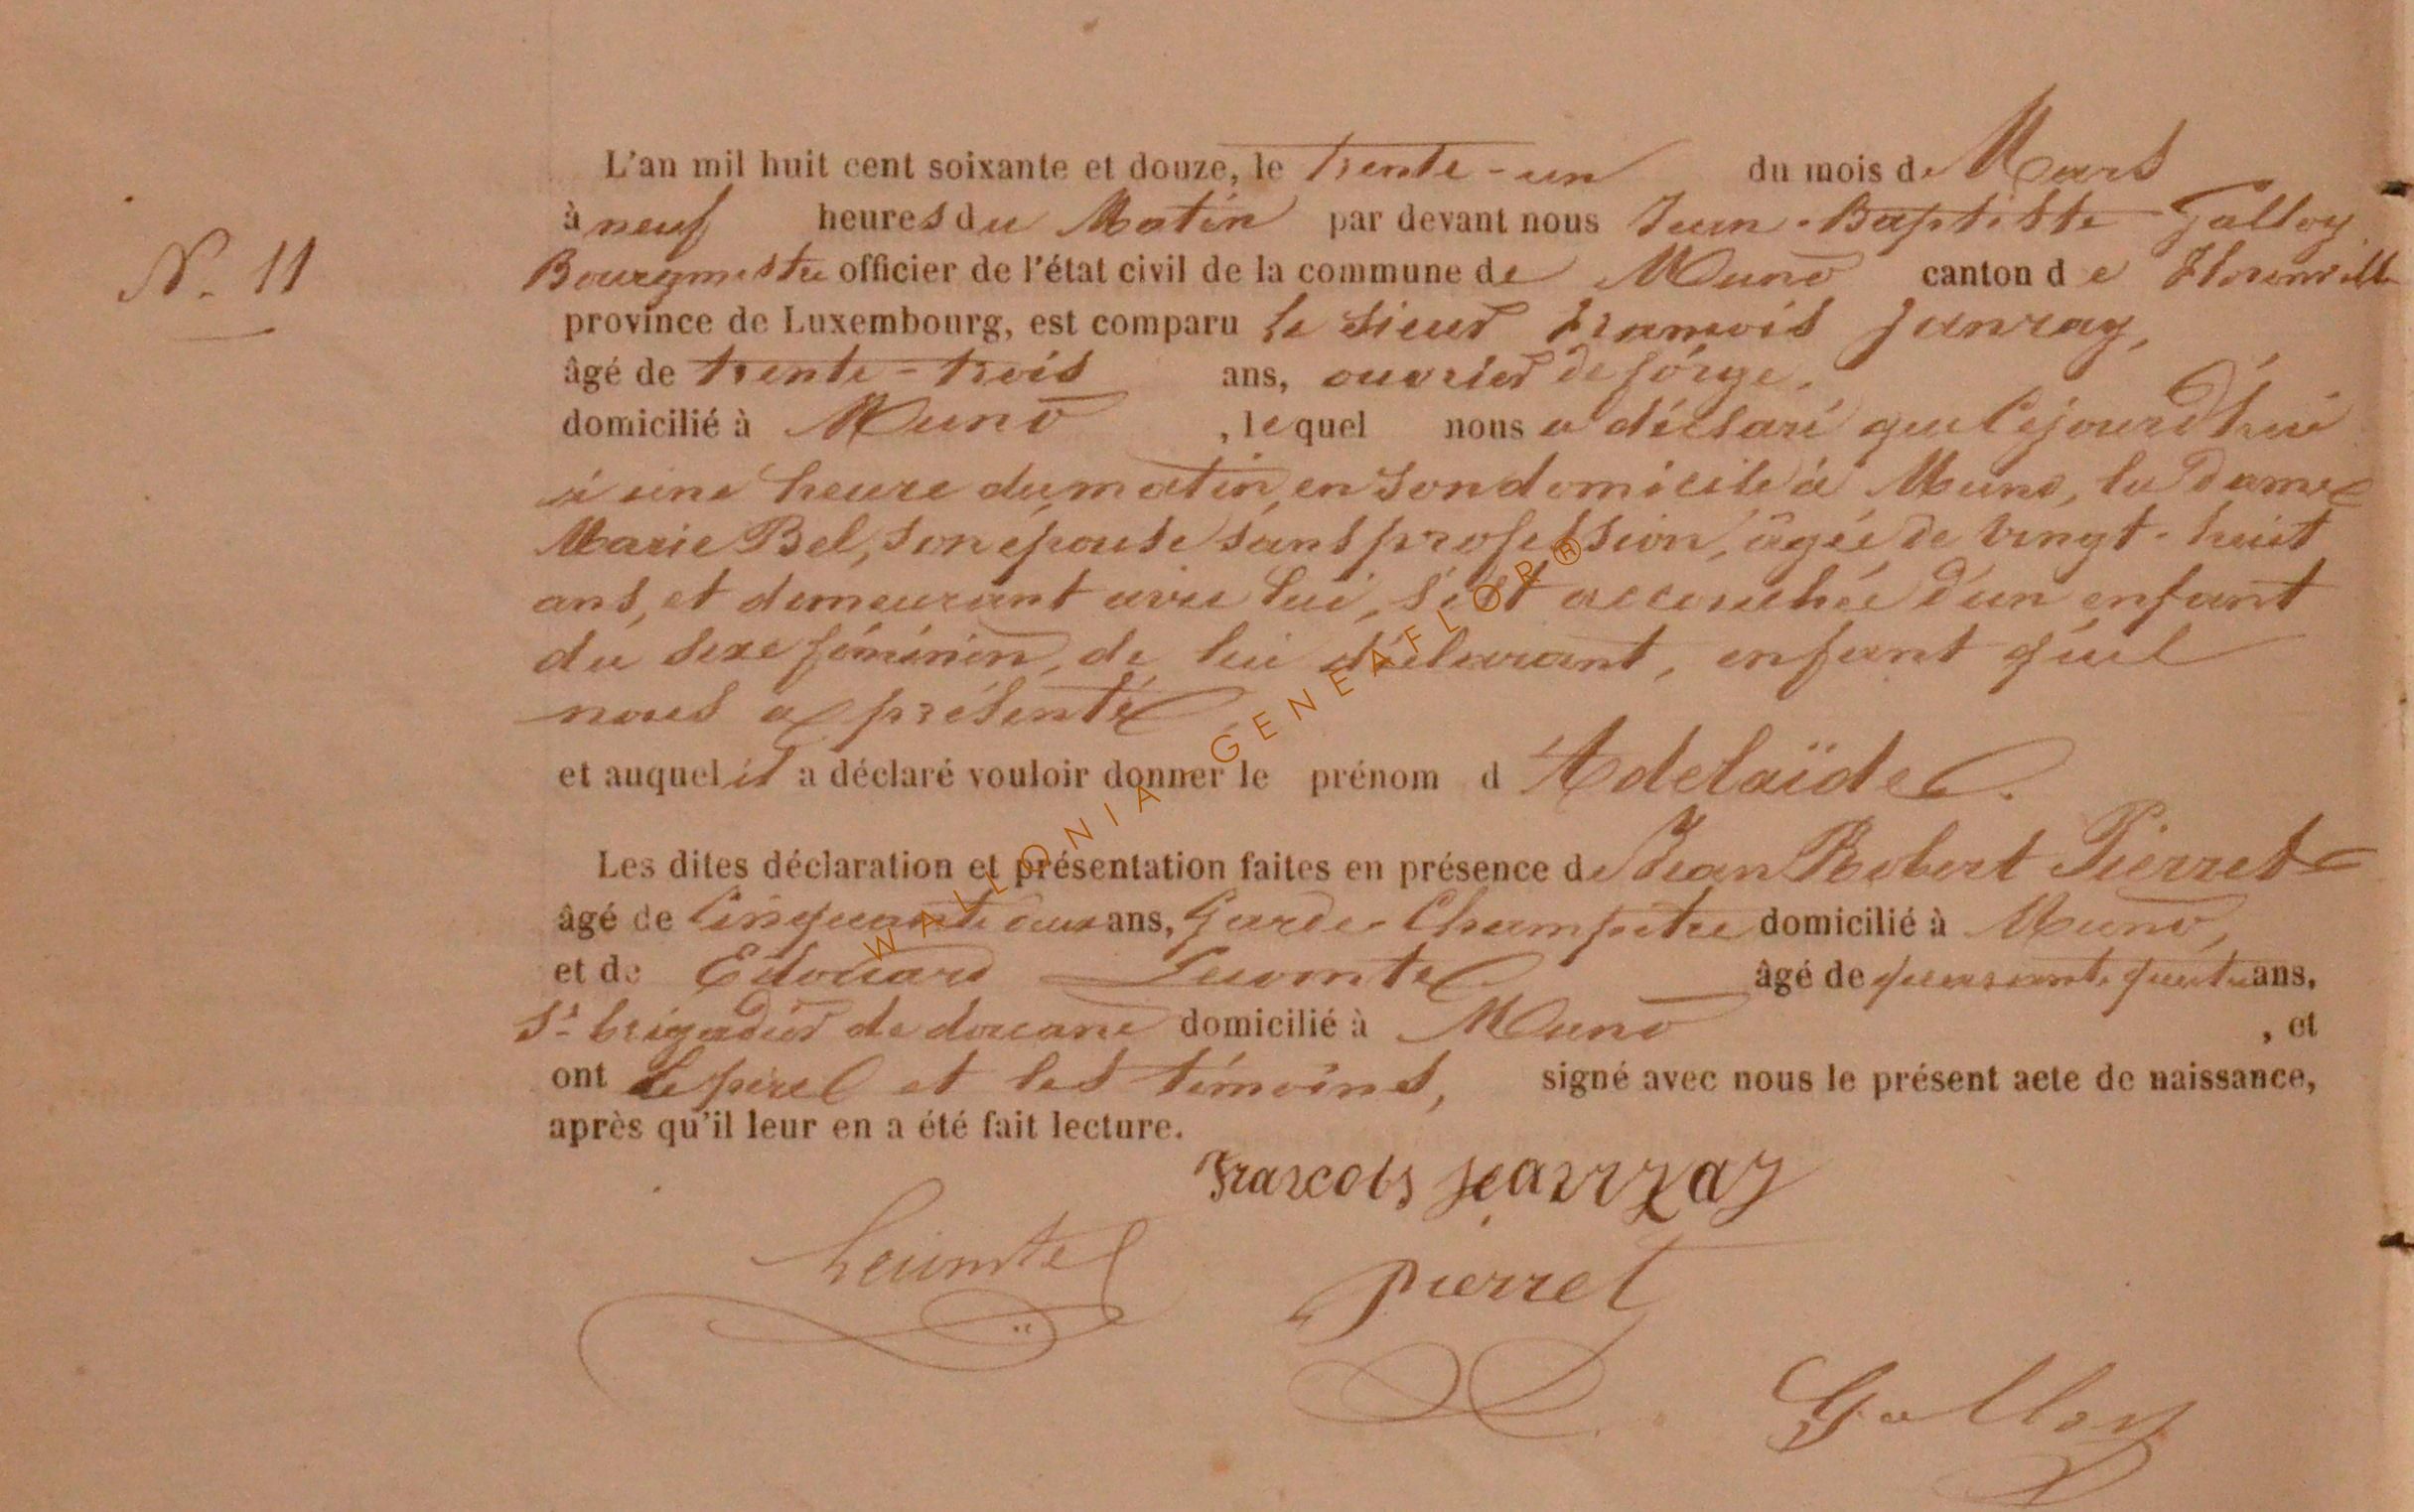 N. 11
L'an mil huit cent soixante et douze, le trente-un du mois de Mars
à neuf heures du Matin par devant nous Jean-Baptiste Galloy
Bourgmestre officier de l'état civil de la commune de Muno canton de Florenville
province de Luxembourg, est comparu le sieur François Janray,
âgé de trente-trois ans, ouvrier de forge,
domicilié à Muno, lequel nous a déclaré que Cejourd'hui
à une heure du matin, en son domicile à Muno, la dame
Marie Bel, son épouse sans profession, âgée de vingt-huit
ans, et demeurant avec lui, s'est accouchée d'un enfant
du sexe féminin, de lui déclarant, enfant qu'il
nous a présenté
et auquel il a déclaré vouloir donner le prénom d'Adelaïde.
Les dites déclaration et présentation faites en présence de Jean Robert Pierret
âgé de Cinquante deux ans, Garde-Champetre domicilié à Muno,
et de Edouard Lecomte âgé de quarante quatre ans,
Ss brigadier de douane domicilié à Muno, et
ont Le père et les témoins, signé avec nous le présent acte de naissance,
après qu'il leur en a été fait lecture.
Francois Jeanray
Lecomte
Pierret
Galloy
WALLONIA GENEAFLOR®